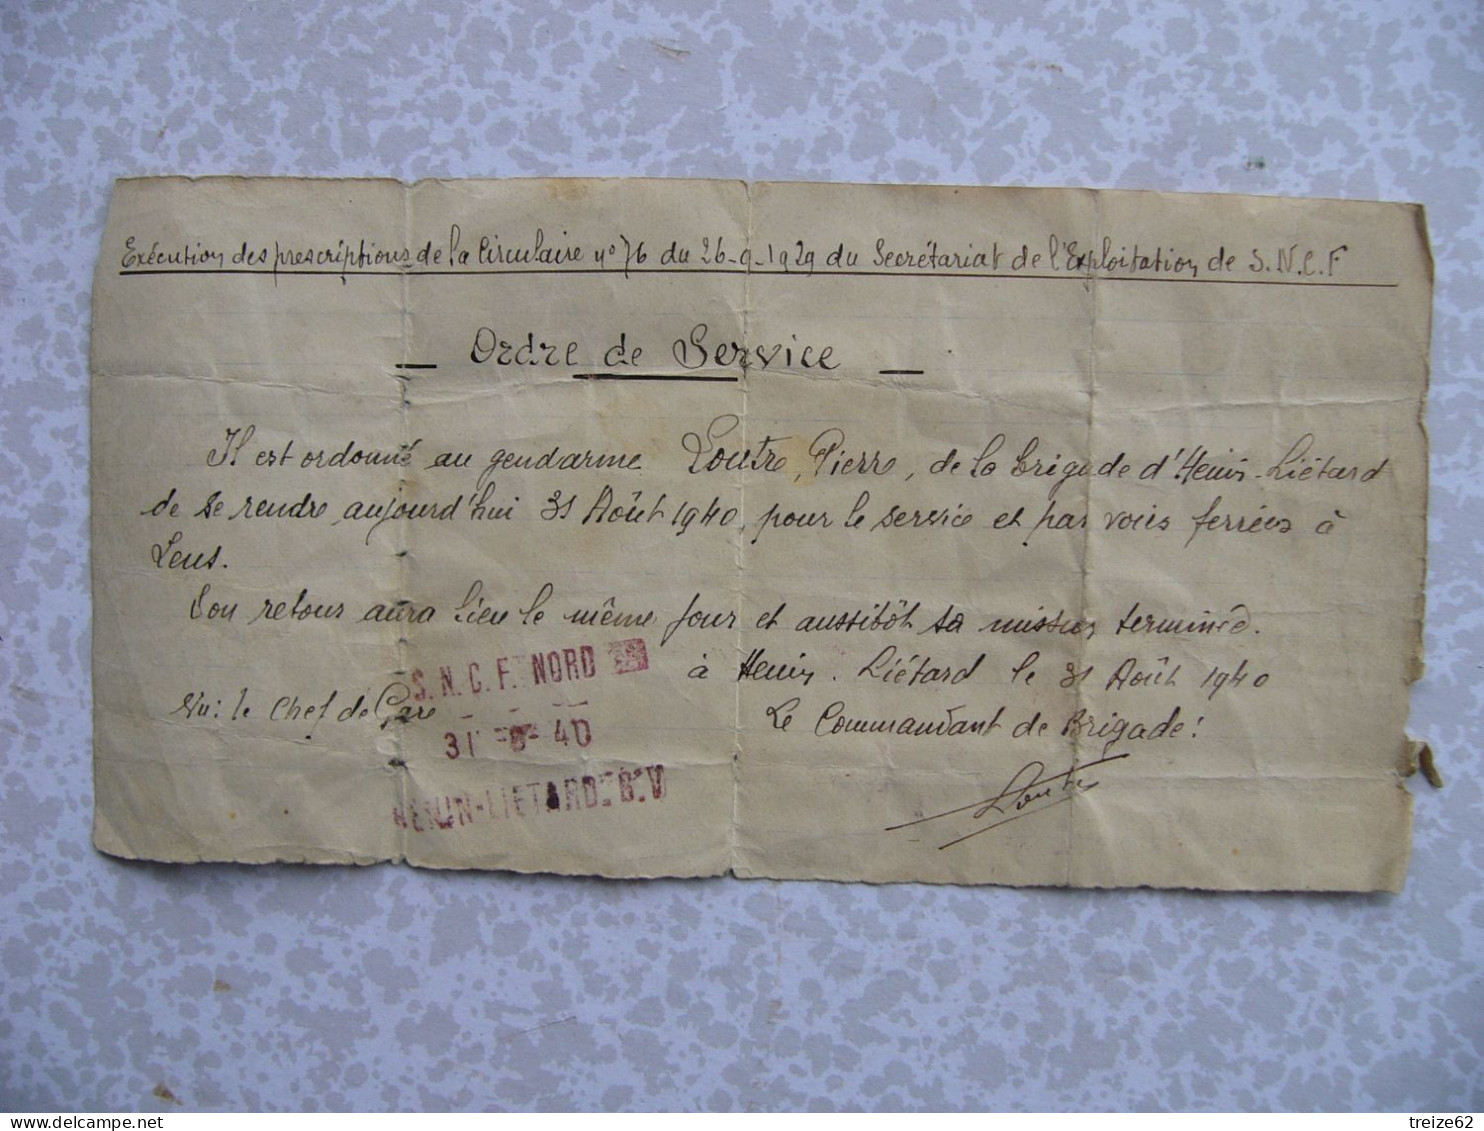 Exécution des prescriptions de la Circulaire n° 76 du 26-9-1929 du Secrétariat de l'Exploitation de S.N.C.F
— Ordre de Service —
Il est ordonné au gendarme Loutre, Pierre, de la brigade d'Henin-Liétard
de se rendre aujourd'hui 31 Août 1940, pour le service et par voies ferrées à
Lens.
Son retour aura lieu le même jour et aussitôt sa mission terminée.
à Henin-Liétard le 31 Août 1940
Vu: le Chef de Gare
Le Commandant de Brigade:
S.N.C.F. NORD
31 -8- 40
HENIN-LIETARD. G.V
Loutre
www.delcampe.net
treize62